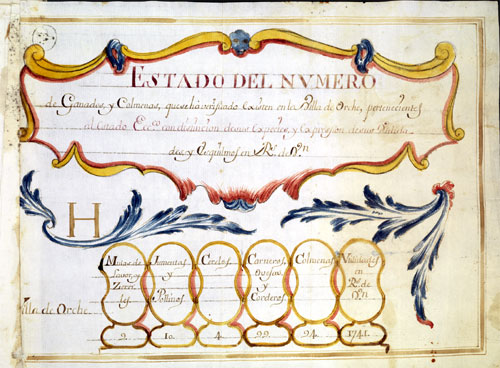 ESTADO DEL NVMERO
de Ganados, y Colmenas, que se ha verificado existen en la Villa de Orche, pertenecientes
al Estado Ecc.co con distincion de sus Especies, y Expresion de sus Utilida
des, y Esquilmos en R.s de V.on
H
Mulas de Lavor, y Zerri les
Jumentas y Pollinos
Cerdos
Carneros, Ovejas, y Corderos
Colmenas
Utilidades en R.s de V.on
Villa de Orche
9. 10. 4. 99. 94. 1741.